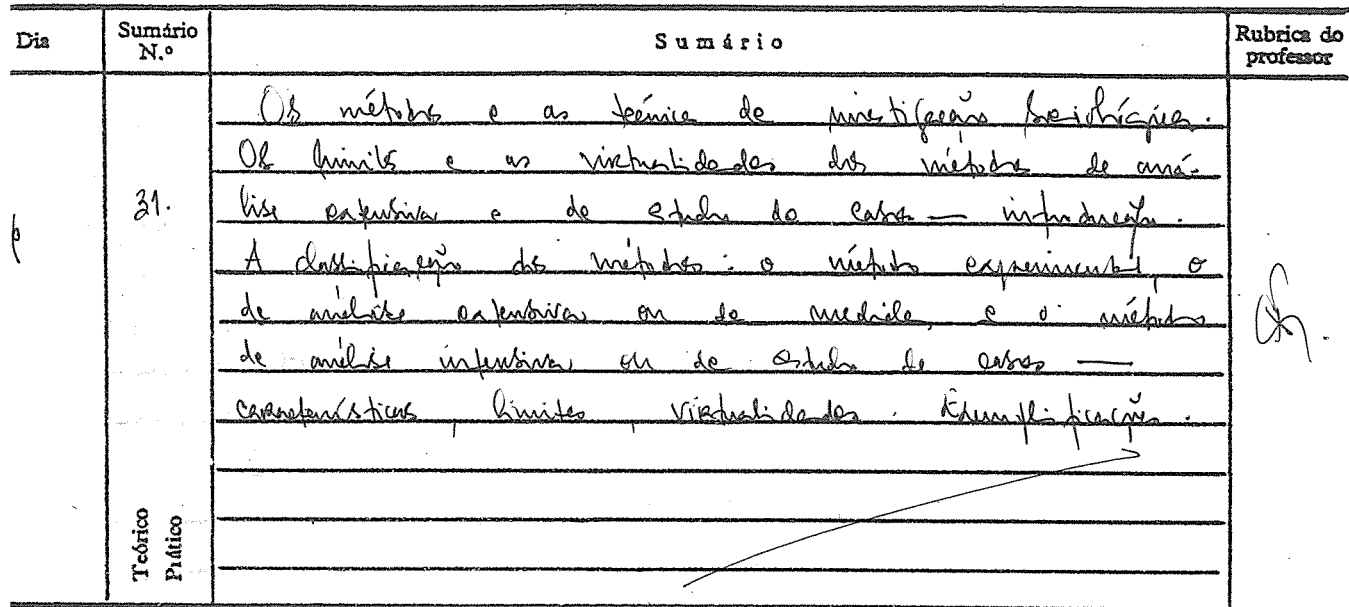 Dia
Sumário N.º
Sumário
Rubrica do professor
Os métodos e as técnica de investigação sociológica.
Os limites e as virtualidades dos métodos de aná-
31.
lise extensiva e de estudo de casos — introdução.
A classificação dos métodos: o método experimental, o
de análise extensiva ou de medida, e o método
de análise intensiva ou de estudo de casos —
características, limites, virtualidades. Exemplificações.
Teórico
Prático